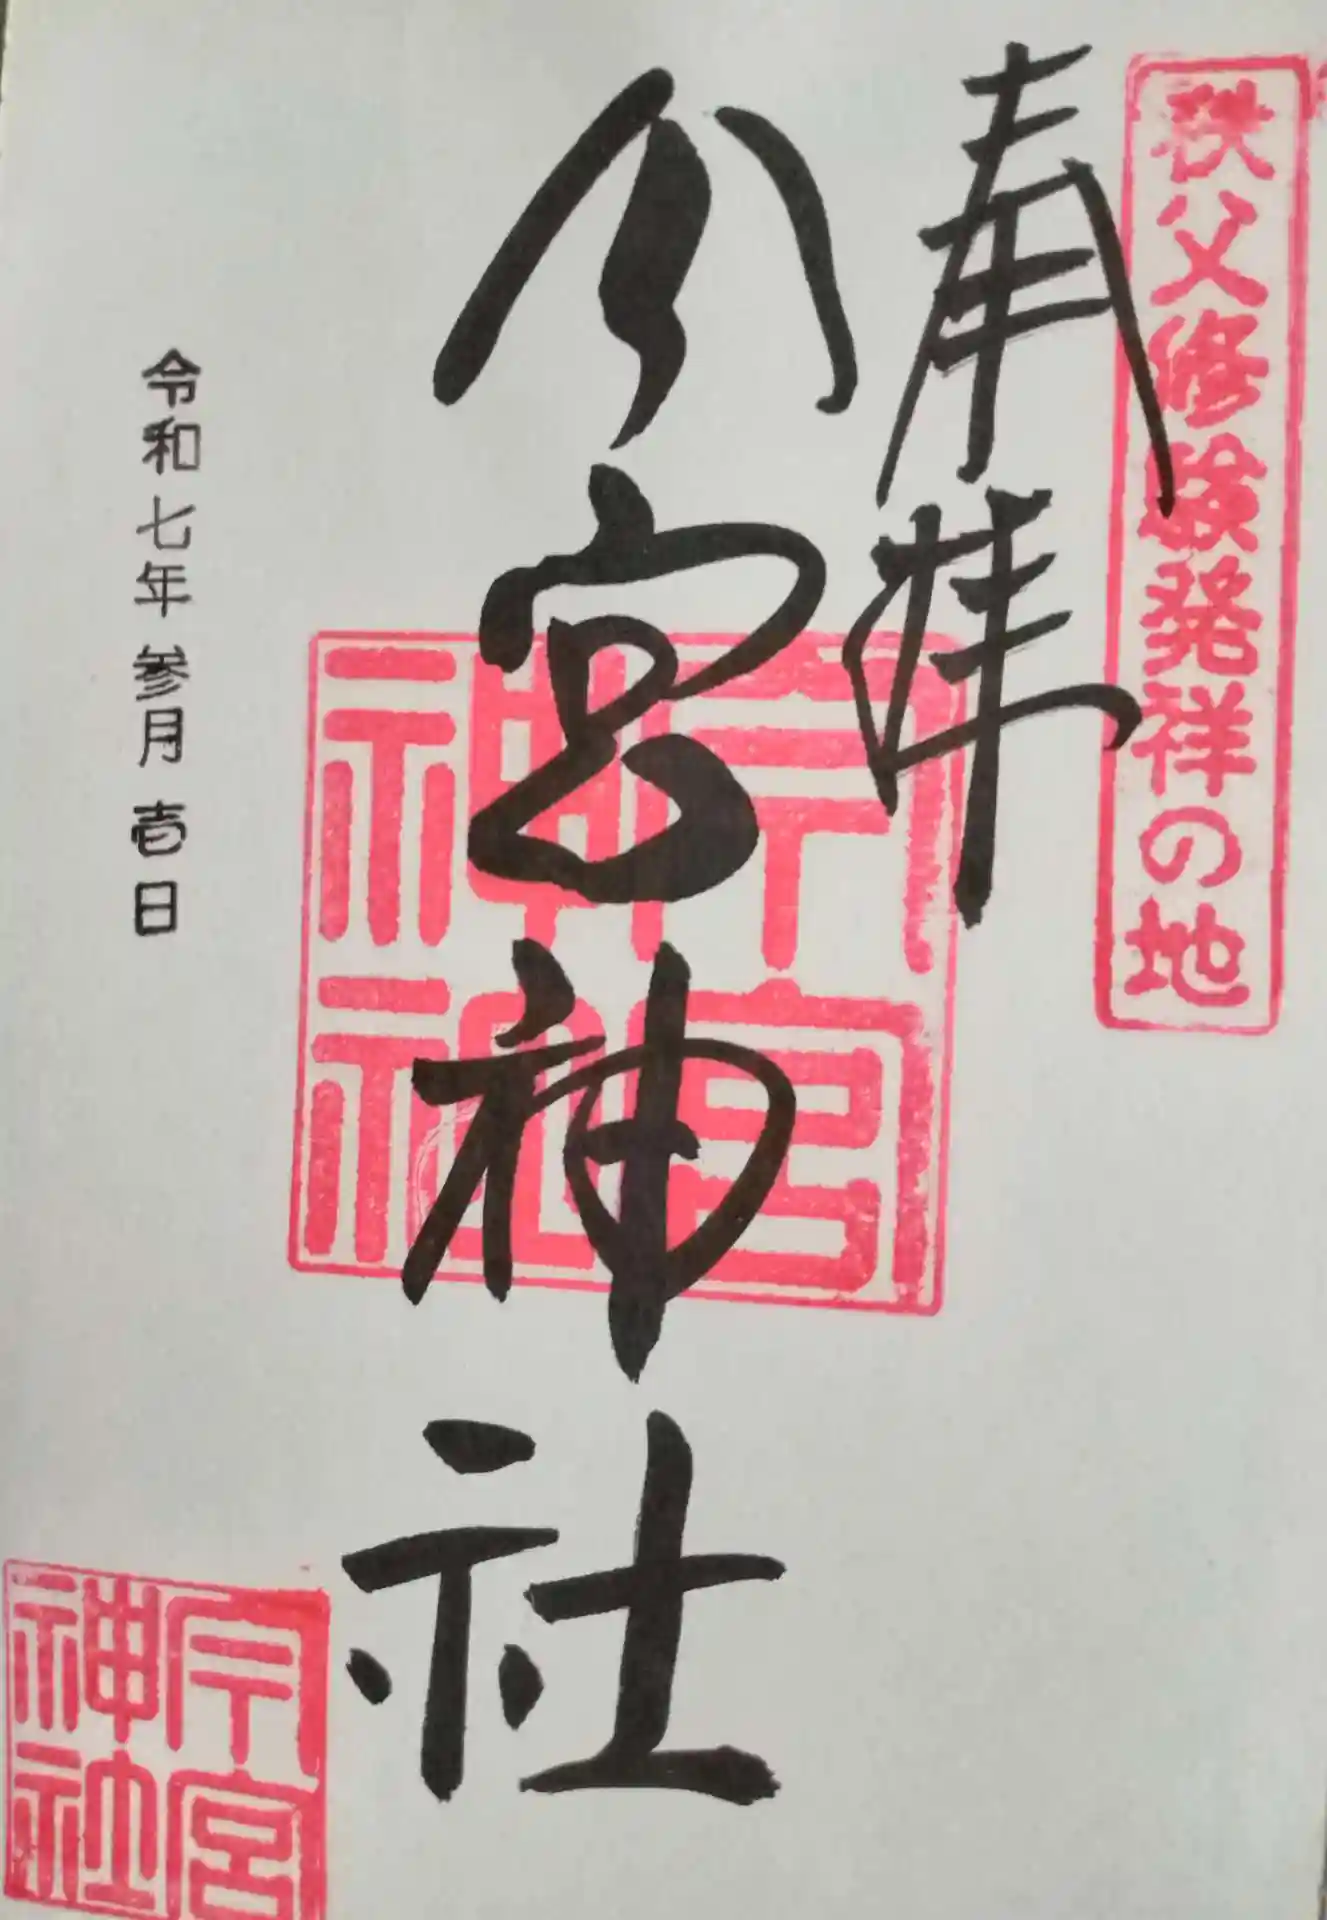 秩父修験発祥の地
奉拝
今宮神社
今宮神社
令和七年参月壱日
今宮神社